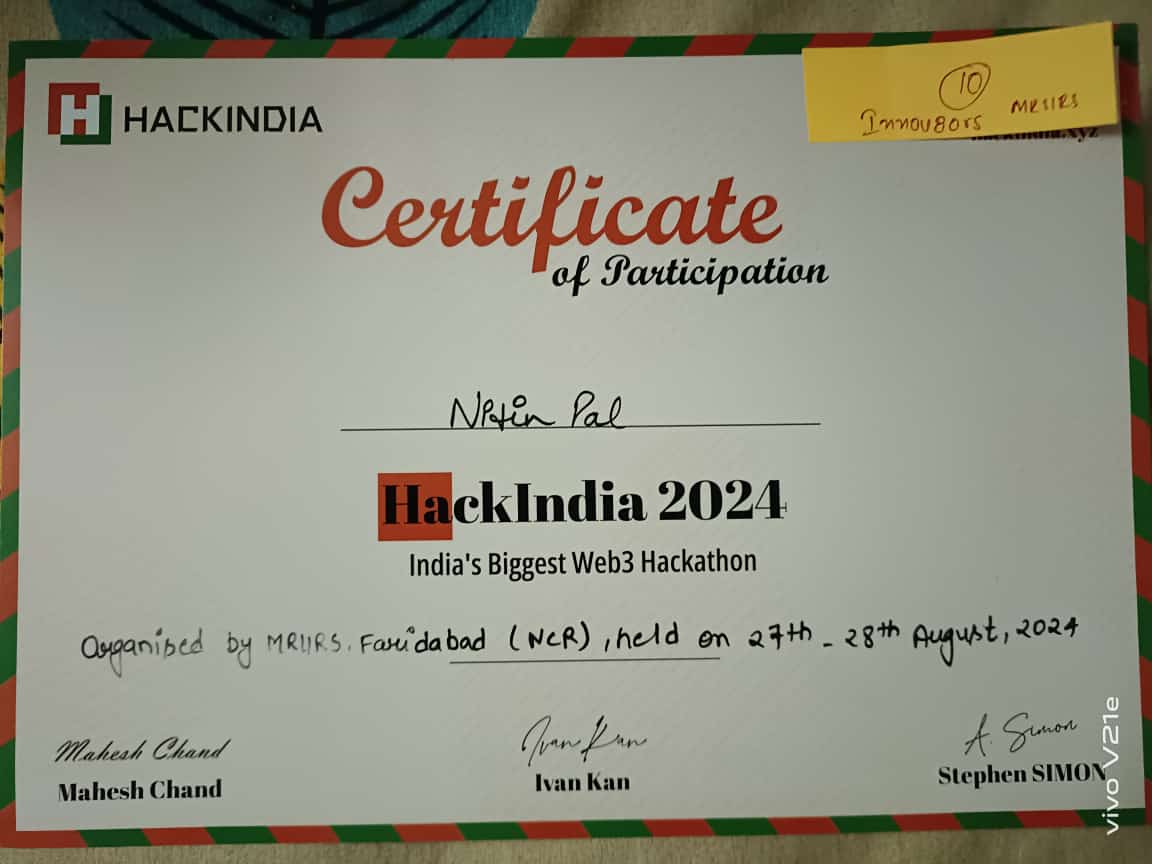 HACKINDIA
10
Innov8ors MRIIRS
Certificate
of Participation
Nitin Pal
HackIndia 2024
India's Biggest Web3 Hackathon
Organised by MRIIRS. Faridabad (NCR), held on 27th - 28th August, 2024
Mahesh Chand
Ivan Kan
A. Simon
Mahesh Chand
Ivan Kan
Stephen SIMON
vivo V21e